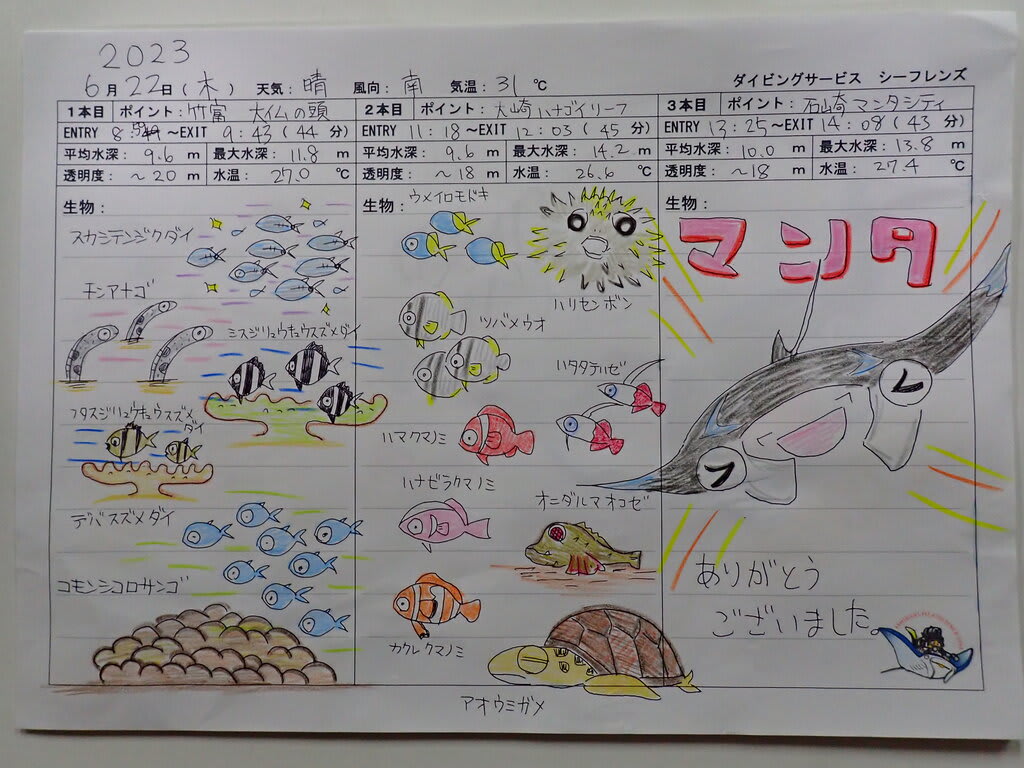 2023
6月22日(木) 天気:晴 風向:南 気温:31℃
ダイビングサービス シーフレンズ
1本目 ポイント:竹富 大仏の頭
ENTRY 8:59~EXIT 9:43(44分)
平均水深:9.6m 最大水深:11.8m
透明度:~20m 水温:27.0℃
生物:
スカシテンジクダイ
チンアナゴ
ミスジリュウキュウスズメダイ
フタスジリュウキュウスズメ
ダイ
デバスズメダイ
コモンシコロサンゴ
2本目 ポイント:大崎ハナゴイリーフ
ENTRY 11:18~EXIT 12:03(45分)
平均水深:9.6m 最大水深:14.2m
透明度:~18m 水温:26.6℃
生物:
ウメイロモドキ
ハリセンボン
ツバメウオ
ハタタテハゼ
ハマクマノミ
ハナビラクマノミ
オニダルマオコゼ
カクレクマノミ
アオウミガメ
3本目 ポイント:石崎マンタシティ
ENTRY 13:25~EXIT 14:08(43分)
平均水深:10.0m 最大水深:13.8m
透明度:~18m 水温:27.4℃
生物:
マンタ
ありがとう
ございました。